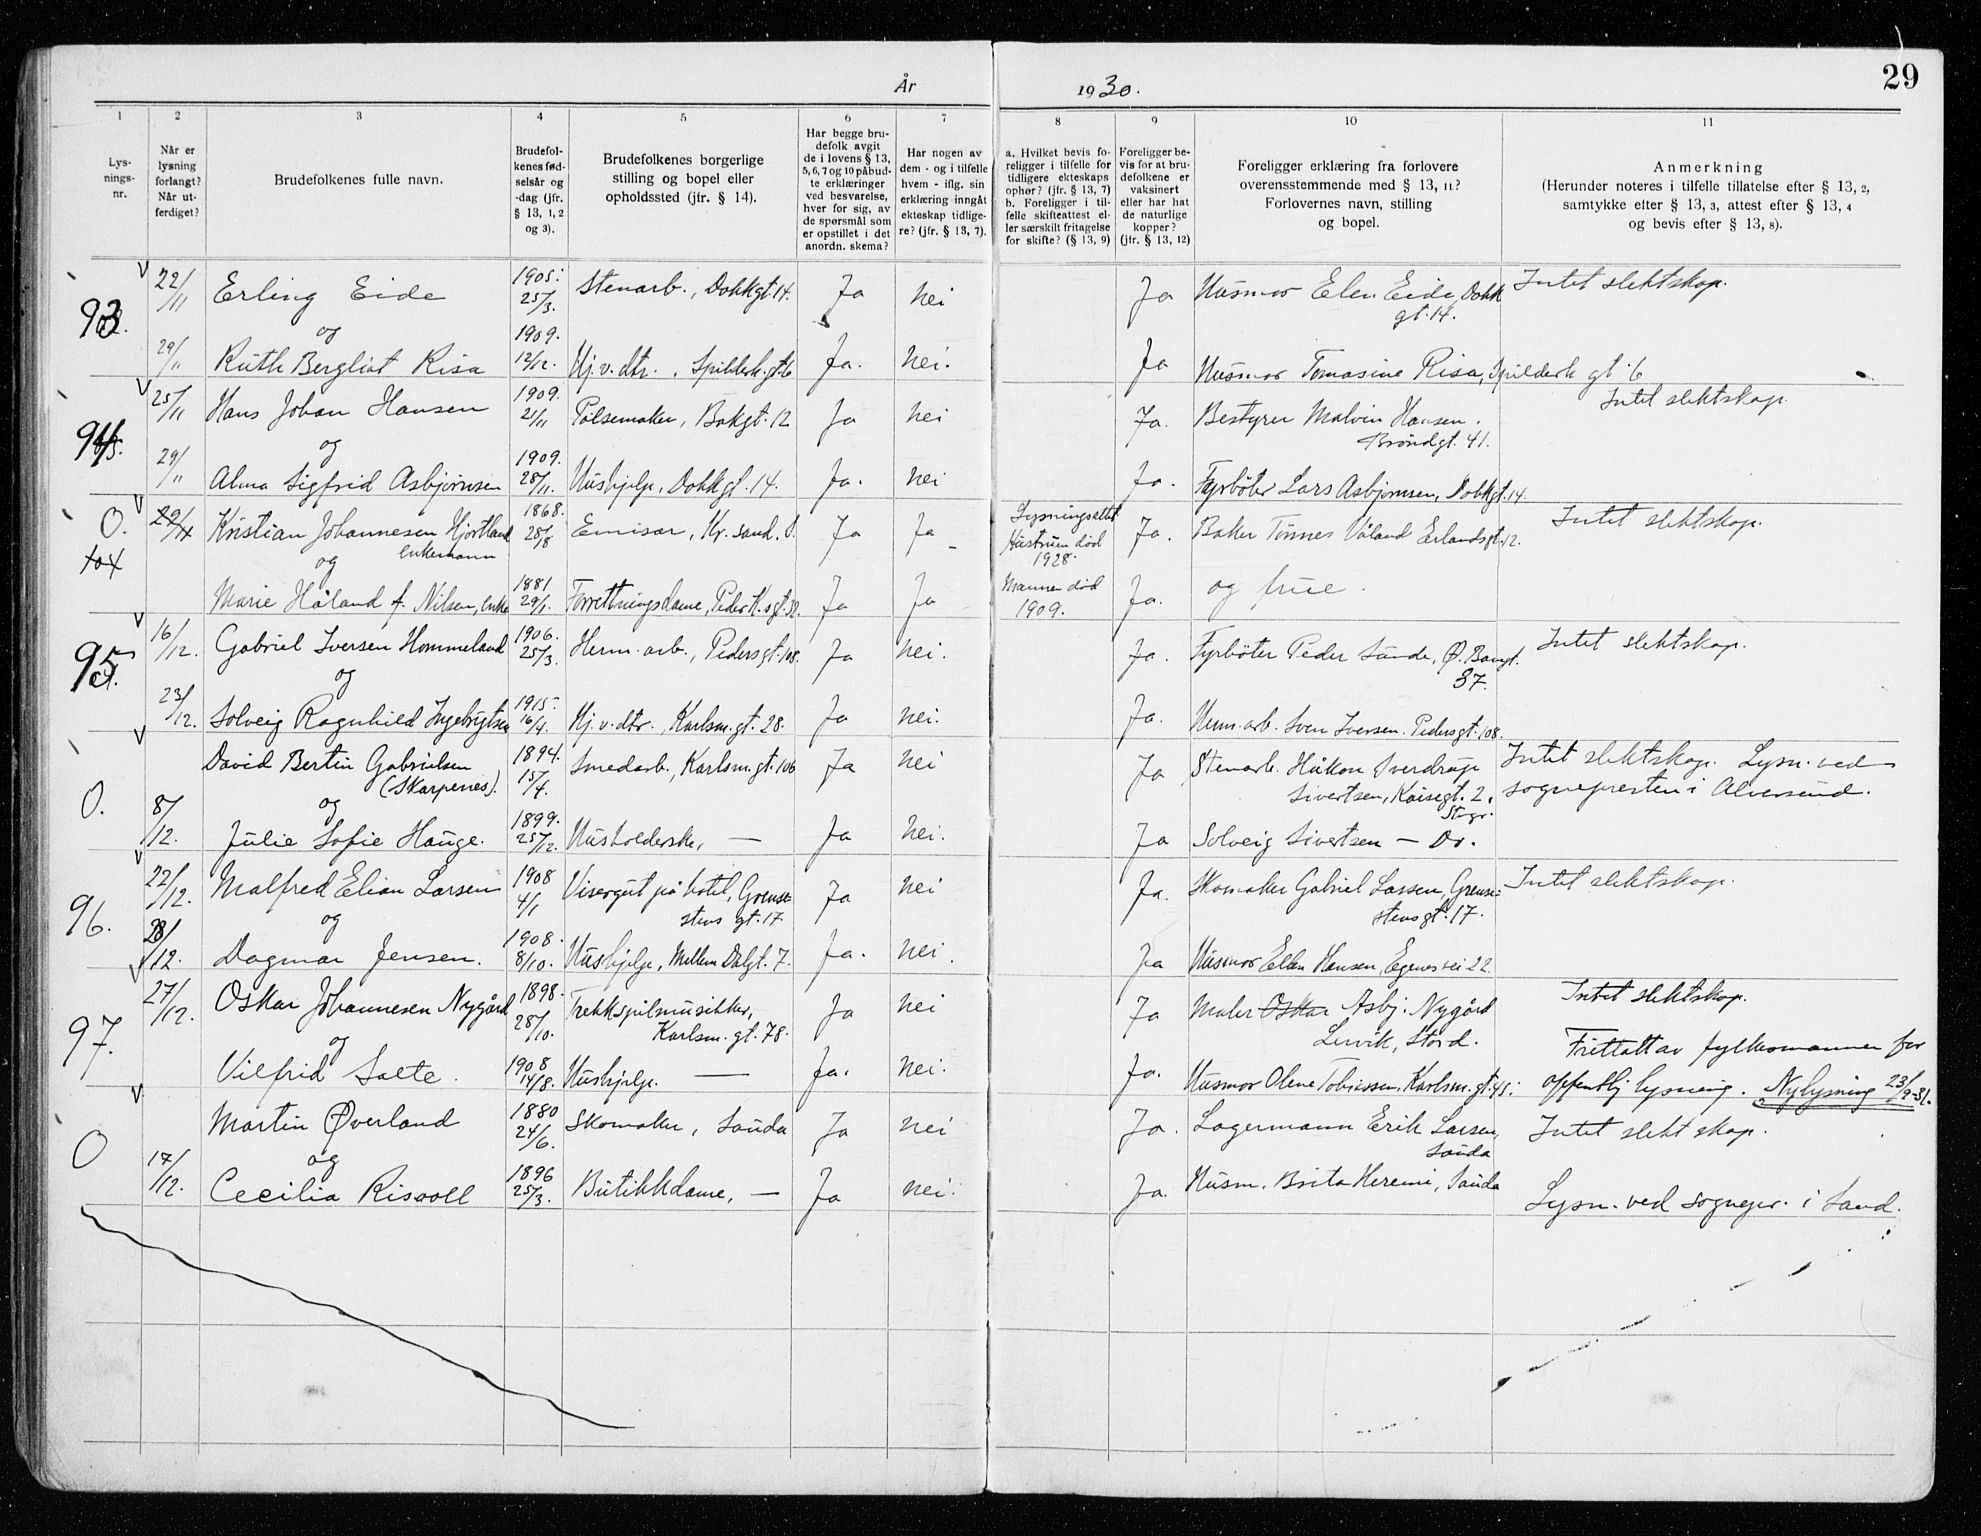 29
År 1930.
1 2 3 4 5 6 7 8 9 10 11
Lys-
nings-
nr.
Når er
lysning
forlangt?
Når ut-
ferdiget?
Brudefolkenes fulle navn.
Brudefol-
kenes fød-
selsår og
-dag (jfr.
§ 13, 1, 2
og 3).
Brudefolkenes borgerlige
stilling og bopel eller
opholdssted (jfr. § 14).
Har begge bru-
defolk avgit
de i lovens § 13,
5, 6, 7 og 10 påbud-
te erklæringer
ved besvarelse,
hver for sig, av
de spørsmål som
er opstillet i det
anordn. skema?
Har nogen av
dem - og i tilfelle
hvem - iflg. sin
erklæring inngåt
ekteskap tidlige-
re? (jfr. § 13, 7).
a. Hvilket bevis fo-
religger i tilfelle for
tidligere ekteskaps
ophør? (jfr. § 13, 7)
b. Foreligger i til-
felle skifteattest el-
ler særskilt fritagelse
for skifte? (§ 13, 9)
Foreligger be-
vis for at bru-
defolkene er
vaksinert
eller har hat
de naturlige
kopper?
(jfr. § 13, 12)
Foreligger erklæring fra forlovere
overensstemmende med § 13, 11?
Forlovernes navn, stilling
og bopel.
Anmerkning
(Herunder noteres i tilfelle tillatelse efter § 13, 2,
samtykke efter § 13, 3, attest efter § 13, 4
og bevis efter § 13, 8).
93. 22/11 Erling Eide 1905. 25/3. Stenarb., Dokkgt. 14. Ja nei Ja Husmor Elen Eide, Dokk
gt. 14. Intet slektskap.
og
29/11 Ruth Bergliot Risa 1909. 12/12. Hj.v.dtr., Spilderh.gt. 6 Ja. nei. Ja Husmor Tomasine Risa, Spilderh gt. 6
94. 25/11 Hans Johan Hansen 1909. 21/11 Pølsemaker, Bakgt. 12 Ja nei Ja. Bestyrer Malvin Hansen.
Brøndgt. 41. Intet slektskap.
og
29/11 Alma Sigfrid Asbjørnsen 1909. 28/11. Hushjelp, Dokkgt. 14. Ja. nei Ja. Fyrbøter Lars Asbjørnsen, Dokkgt. 14.
0. Kristian Johannesen Hjortland
enkemann 1868. 28/8 Emisær, Kr.sand. S. Ja Ja Lysningsattst
Hustruen død
1928. Ja. Baker Tønnes Våland Erlandsgt. 12. Intet slektskap.
og
Marie Håland f. Nilsen, enke 1881 29/1. Forretningsdame, Peder K.sgt. 32. Ja Ja Mannen død
1909. Ja. og frue.
95. 16/12. Gabriel Iversen Hommeland 1906. 25/3. Herm. arb., Pedersgt. 108. Ja nei. Ja. Fyrbøter Peder Sunde, Ø. Bangt.
37. Intet slektskap.
og
23/12. Solveig Ragnhild Ingebrigtsen 1915. 16/4. Hj.v.dtr., Karlsm.gt. 28. Ja nei. Ja. Herm.arb. Sven Iversen. Pedersgt. 108.
0. David Bertin Gabrielsen
(Skarpenes). 1894. 15/4. Smedarb., Karlsm.gt. 106 Ja nei Ja Stenarb. Håkon Sverdrup
Sivertsen, Kaisegt. 2. Stvgr. Intet slektskap. Lysn. ved
sognepresten i Alversund.
og
8/12. Julie Sofie Hauge. 1899. 25/12. Husholderske, — Ja nei. Ja Solveig Sivertsen — Do.
96. 22/12. Malfred Elian Larsen 1908 4/1 Visergut på hotel, Grense-
stens gt. 17. Ja nei Ja. Skomaker Gabriel Larsen, Grense-
stensgt. 17. Intet slektskap.
og
28/12. Dagmar Jensen. 1908. 8/10. Hushjelp, Mellem Dalgt. 7. Ja. nei. Ja Husmor Ellen Hansen, Egenes vei 22.
97. 27/12. Oskar Johannesen Nygård 1898. 28/10. Trekkspilmusikker,
Karlsm.gt. 78. Ja nei Ja Maler Oskar Asbj. Nygård
Lervik, Stord. Intet slektskap.
og
Vilfrid Salte. 1908 14/8. Hushjelp. — Ja. nei. Ja. Husmor Olene Tobiassen, Karlsm.gt. 45. Fritatt av fylkesmannen for
offentlig lysning. Ny lysning 23/9-31.
0 Martin Øverland 1880 24/6. Skomaker, Sauda Ja nei Ja. Lagermann Erik Larsen,
Sauda Intet slektskap.
og
17/12. Cecilia Risvoll 1896 25/3. Butikkdame, — Ja nei. Ja. Husm. Brita Hereimi, Sauda Lysn. ved sognepr. i Sand.